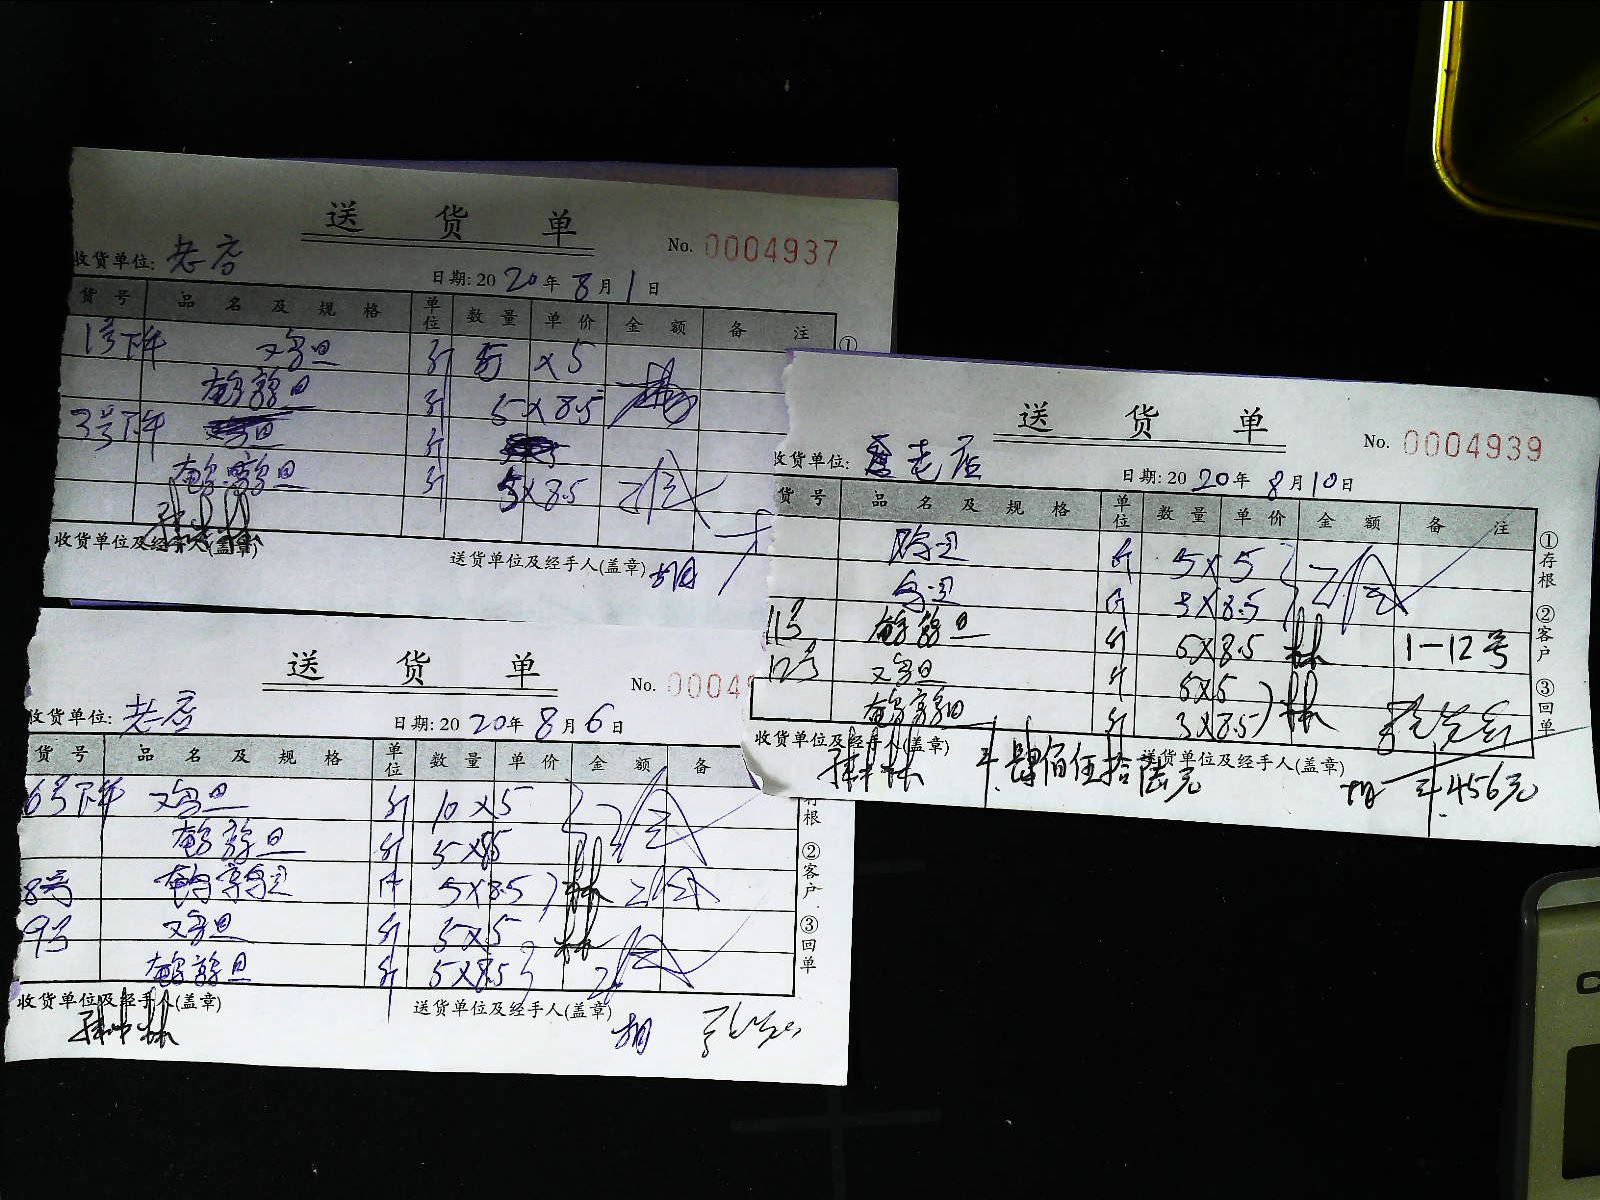 送 货 单
No. 0004937
收货单位: 老店
日期: 2020年 8月 1日
货号 品名及规格 单位 数量 单价 金额 备注
1号下午 又鸟旦 斤 5 × 5
鹌鹑旦 斤 5 × 8.5
3号下午 斤
鹌鹑旦 斤 5 × 8.5
收货单位及经手人(盖章)
送货单位及经手人(盖章) 胡
①
送 货 单
No. 0004939
收货单位: 老店
日期: 2020年 8月 10日
货号 品名及规格 单位 数量 单价 金额 备注
斤 5 × 5
斤 3 × 8.5
11号 鹌鹑旦 斤 5 × 8.5 林 1-12号
12号 又鸟旦 斤 5 × 5
鹌鹑旦 斤 3 × 8.5 林
收货单位及经手人(盖章)
送货单位及经手人(盖章)
肆佰伍拾陆元
胡 456元
①存根 ②客户 ③回单
送 货 单
No. 0004
收货单位: 老店
日期: 2020年 8月 6日
货号 品名及规格 单位 数量 单价 金额 备
6号下午 又鸟旦 斤 10 × 5
鹌鹑旦 斤
8号 斤 5 × 8.5 林
9号 又鸟旦 斤 5 × 5 林
鹌鹑旦 斤 5 × 8.5
收货单位及经手人(盖章)
送货单位及经手人(盖章)
胡
存根 ②客户 ③回单